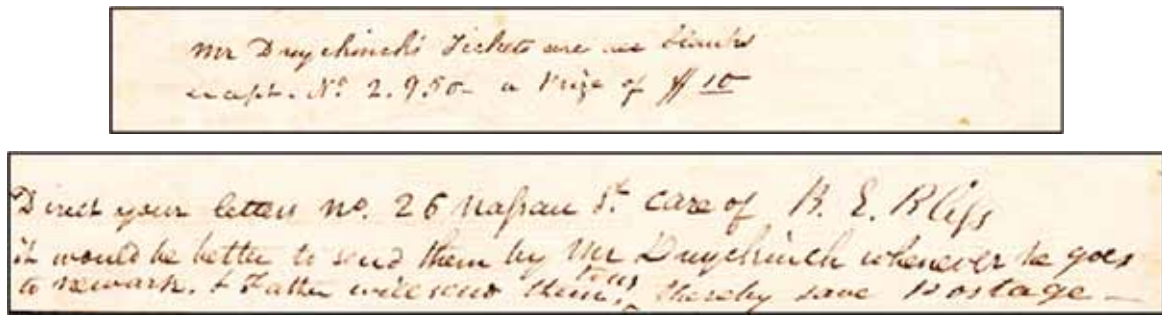 Mr Duychinchs Tickets are all blanks
except. No 2.950- a Prize of $ 10
Direct your letters no. 26 Nassau St. care of B. E. Bliss
it would be better to send them by Mr Duychinch whenever he goes
to Newark. & Father will send them to us, thereby save Postage —